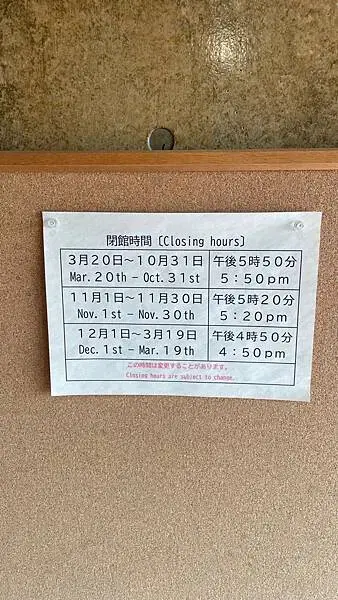 閉館時間〔Closing hours〕
3月20日～10月31日
Mar.20th－Oct.31st
午後5時50分
5：50pm
11月1日～11月30日
Nov.1st－Nov.30th
午後5時20分
5：20pm
12月1日～3月19日
Dec.1st－Mar.19th
午後4時50分
4：50pm
この時間は変更することがあります。
Closing hours are subject to change.